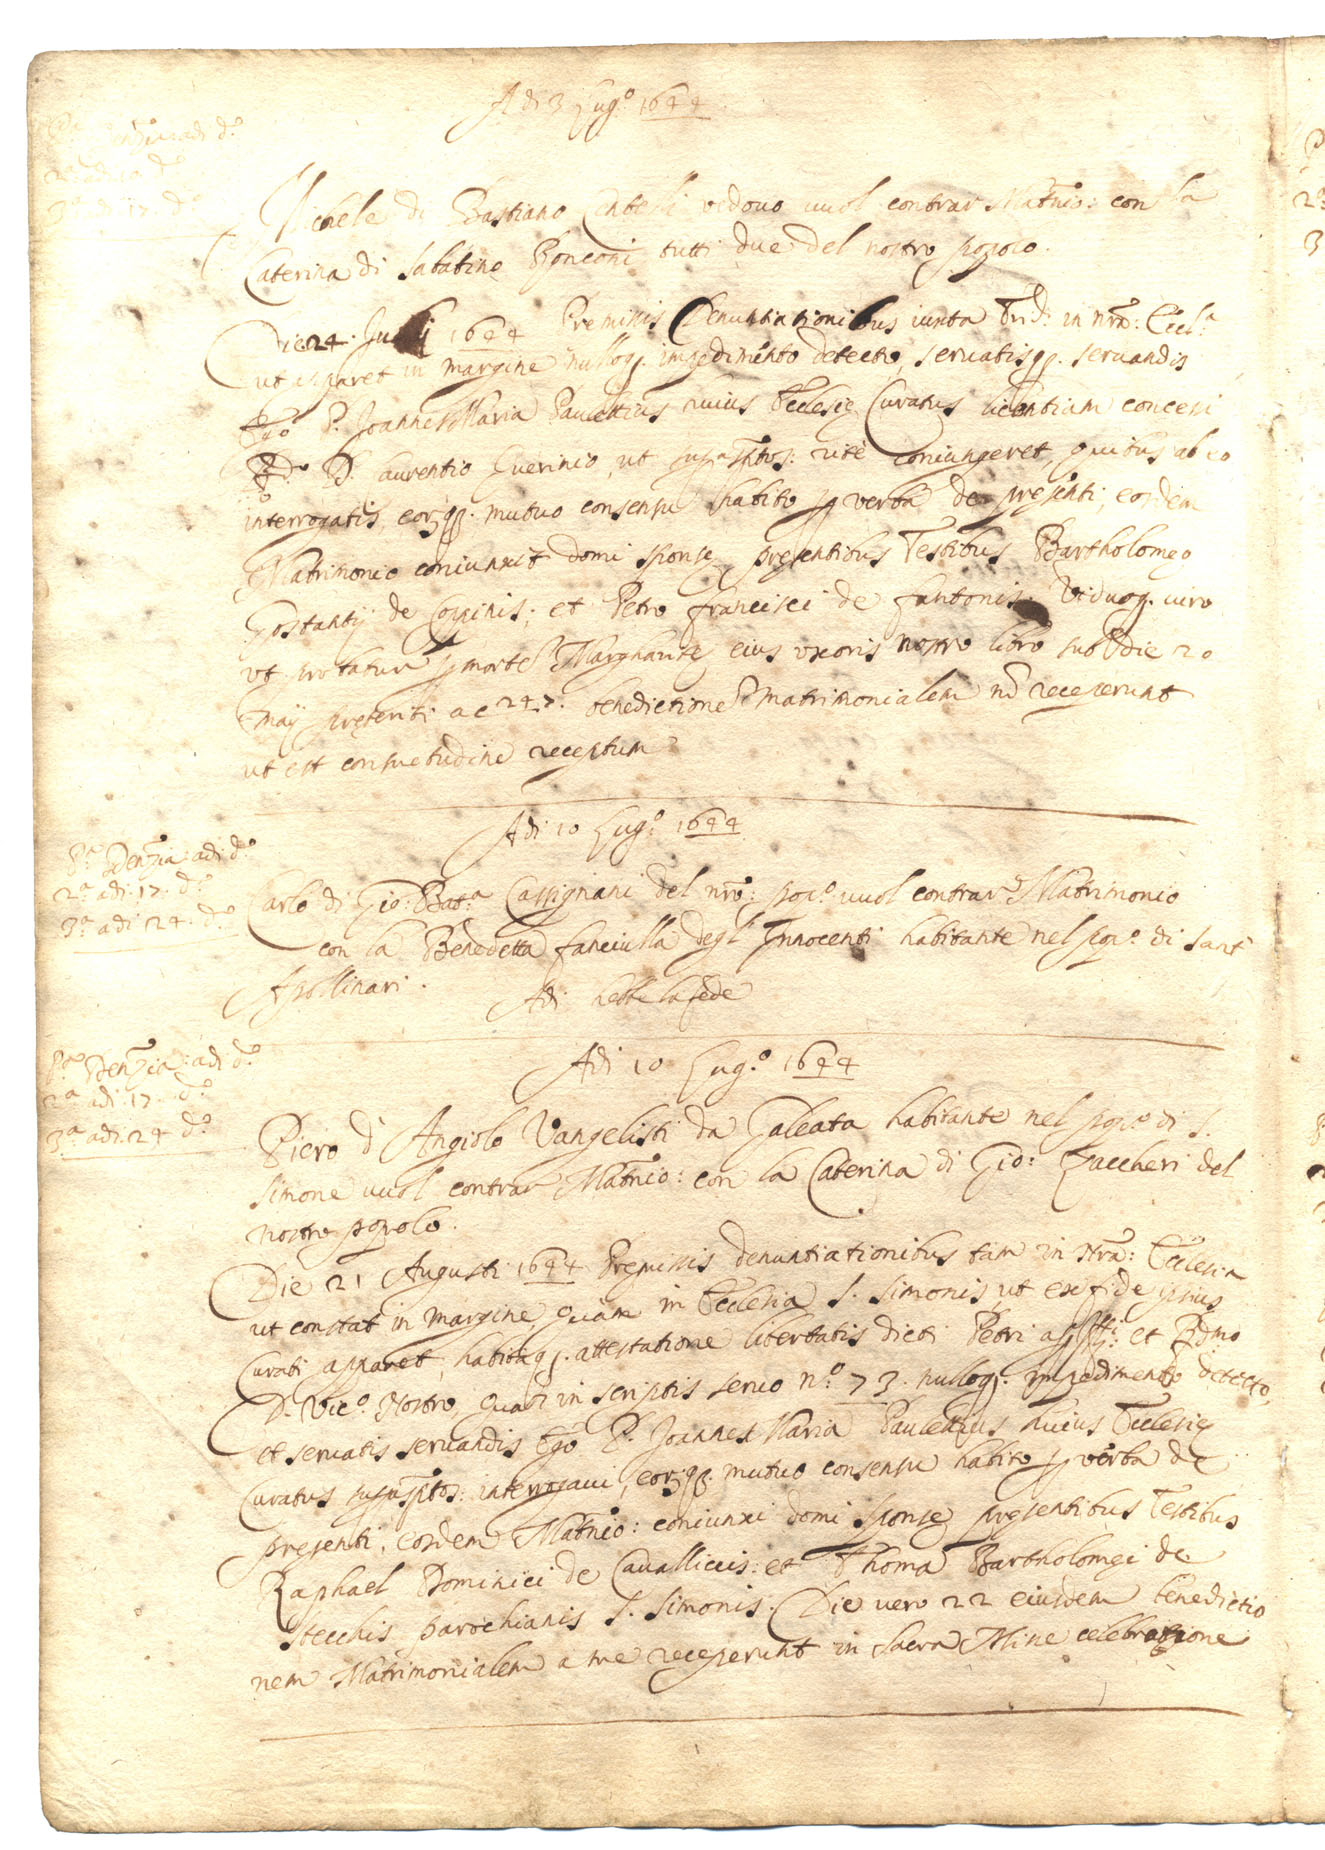 Adi 3 Lug.o 1644
2.a adi 10 d.o
3.a adi 17. d.o
Michele di Bastiano vedovo vuol contrar Matrio: con la
Caterina di Sabatino Ronconi tutti due del nostro popolo.
Die 24. Julij 1644 Premissis Denuntiationibus iuxta Trid: in nra: Eccl.a
ut apparet in margine nulloq. impedimento detecto, servatisq. servandis
Ego P. Joannes Maria Paulettius huius Ecclesię Curatus licentiam concessi
R.do D. Laurentio Guerinio, ut supa sptos: rite coniungeret, quibus ab eo
interrogatis eorq. mutuo consensu habito p verba de presenti, eosdem
Matrimonio coniunxit domi sponsę pręsentibus Testibus Bartholomeo
Gostantij de Coppinis; et Petro Francisci de Fantonis. Viduoq. viro
ut probatur p morte Margharitę eius uxoris nostro libro sub die 20
maij pręteriti a c 247. benedictione matrimonialem nō receperunt
ut est consuetudine receptum
Adi 10 Lug.o 1644
P.a Denzia: adi d.o
2.a adi 17. d.o
3.a adi 24. d.o
Carlo di Gio: Bat.a Cassigniani del nro: pop.o vuol contrar Matrimonio
con la Benedetta fanciulla degl' Innocenti habitante nel pop.o di Sant'
Apollinari. Adi hebbe la fede
Adi 10 Lug.o 1644
P.a Denzia: adi d.o
2.a adi 17. d.o
3.a adi 24 d.o
Piero d' Angiolo Vangelisti da Galeata habitante nel pop.o di S.
Simone vuol contrar Matrio: con la Caterina di Gio: Zaccheri del
nostro popolo.
Die 21 Augusti 1644 Pręmissis denuntiationibus tam in Nra: Ecclesia
ut constat in margine, quam in Ecclesia S. Simonis, ut ex fide ipsius
Curati apparet, habitaq. attestatione libertatis dicti Petri ab et R.dmo
D. Vic.o Nostro, quas in scriptis servo n.o 73. nulloq. impedimento detecto,
et servatis servandis Ego P. Joannes Maria Paulettius huius Ecclesię
Curatus supasptos: interrogavi, eorq. mutuo consensu habito p verba de
presenti, eosdem Matrio: coniunxi domi sponsę pręsentibus Testibus
Raphael Dominici de Cavalliccis: et Thoma Bartholomei de
Stecchis parochianis S. Simonis. Die vero 22 eiusdem benedictio
nem Matrimonialem a me receperunt in Sacra Misse celebratione